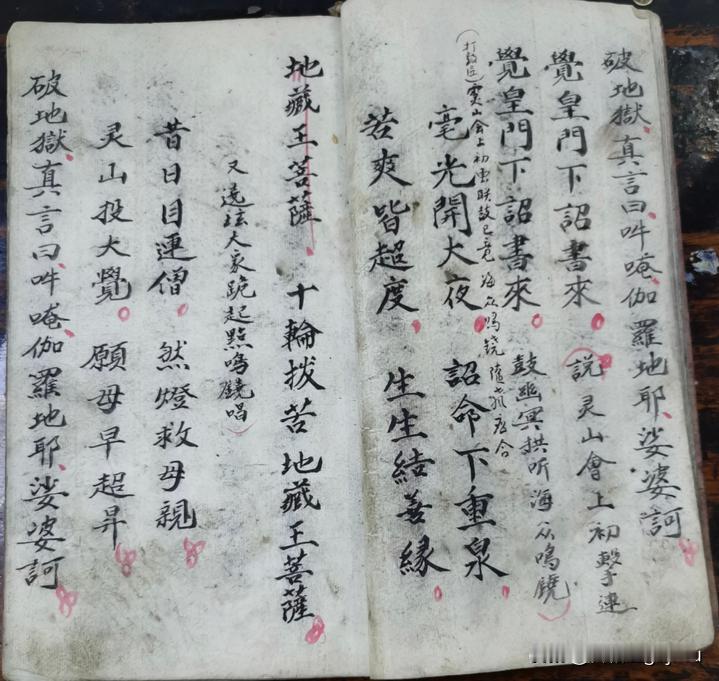 破地獄真言曰吽唵伽羅地耶娑婆訶
覺皇門下詔書來
說灵山會上初擊連
鼓幽冥拱听海众鳴鐃
覺皇門下詔書來
灵山会上初
海众鸣铙
毫光開大夜 詔命下重泉
若爽皆超度 生生結善緣
地藏王菩薩 十輪拔苦地藏王菩薩
又遶法大家跪起點鳴鐃唱
昔日目連僧 然燈救母親
灵山投大覺 願母早超昇
破地獄真言曰吽唵伽羅地耶娑婆訶